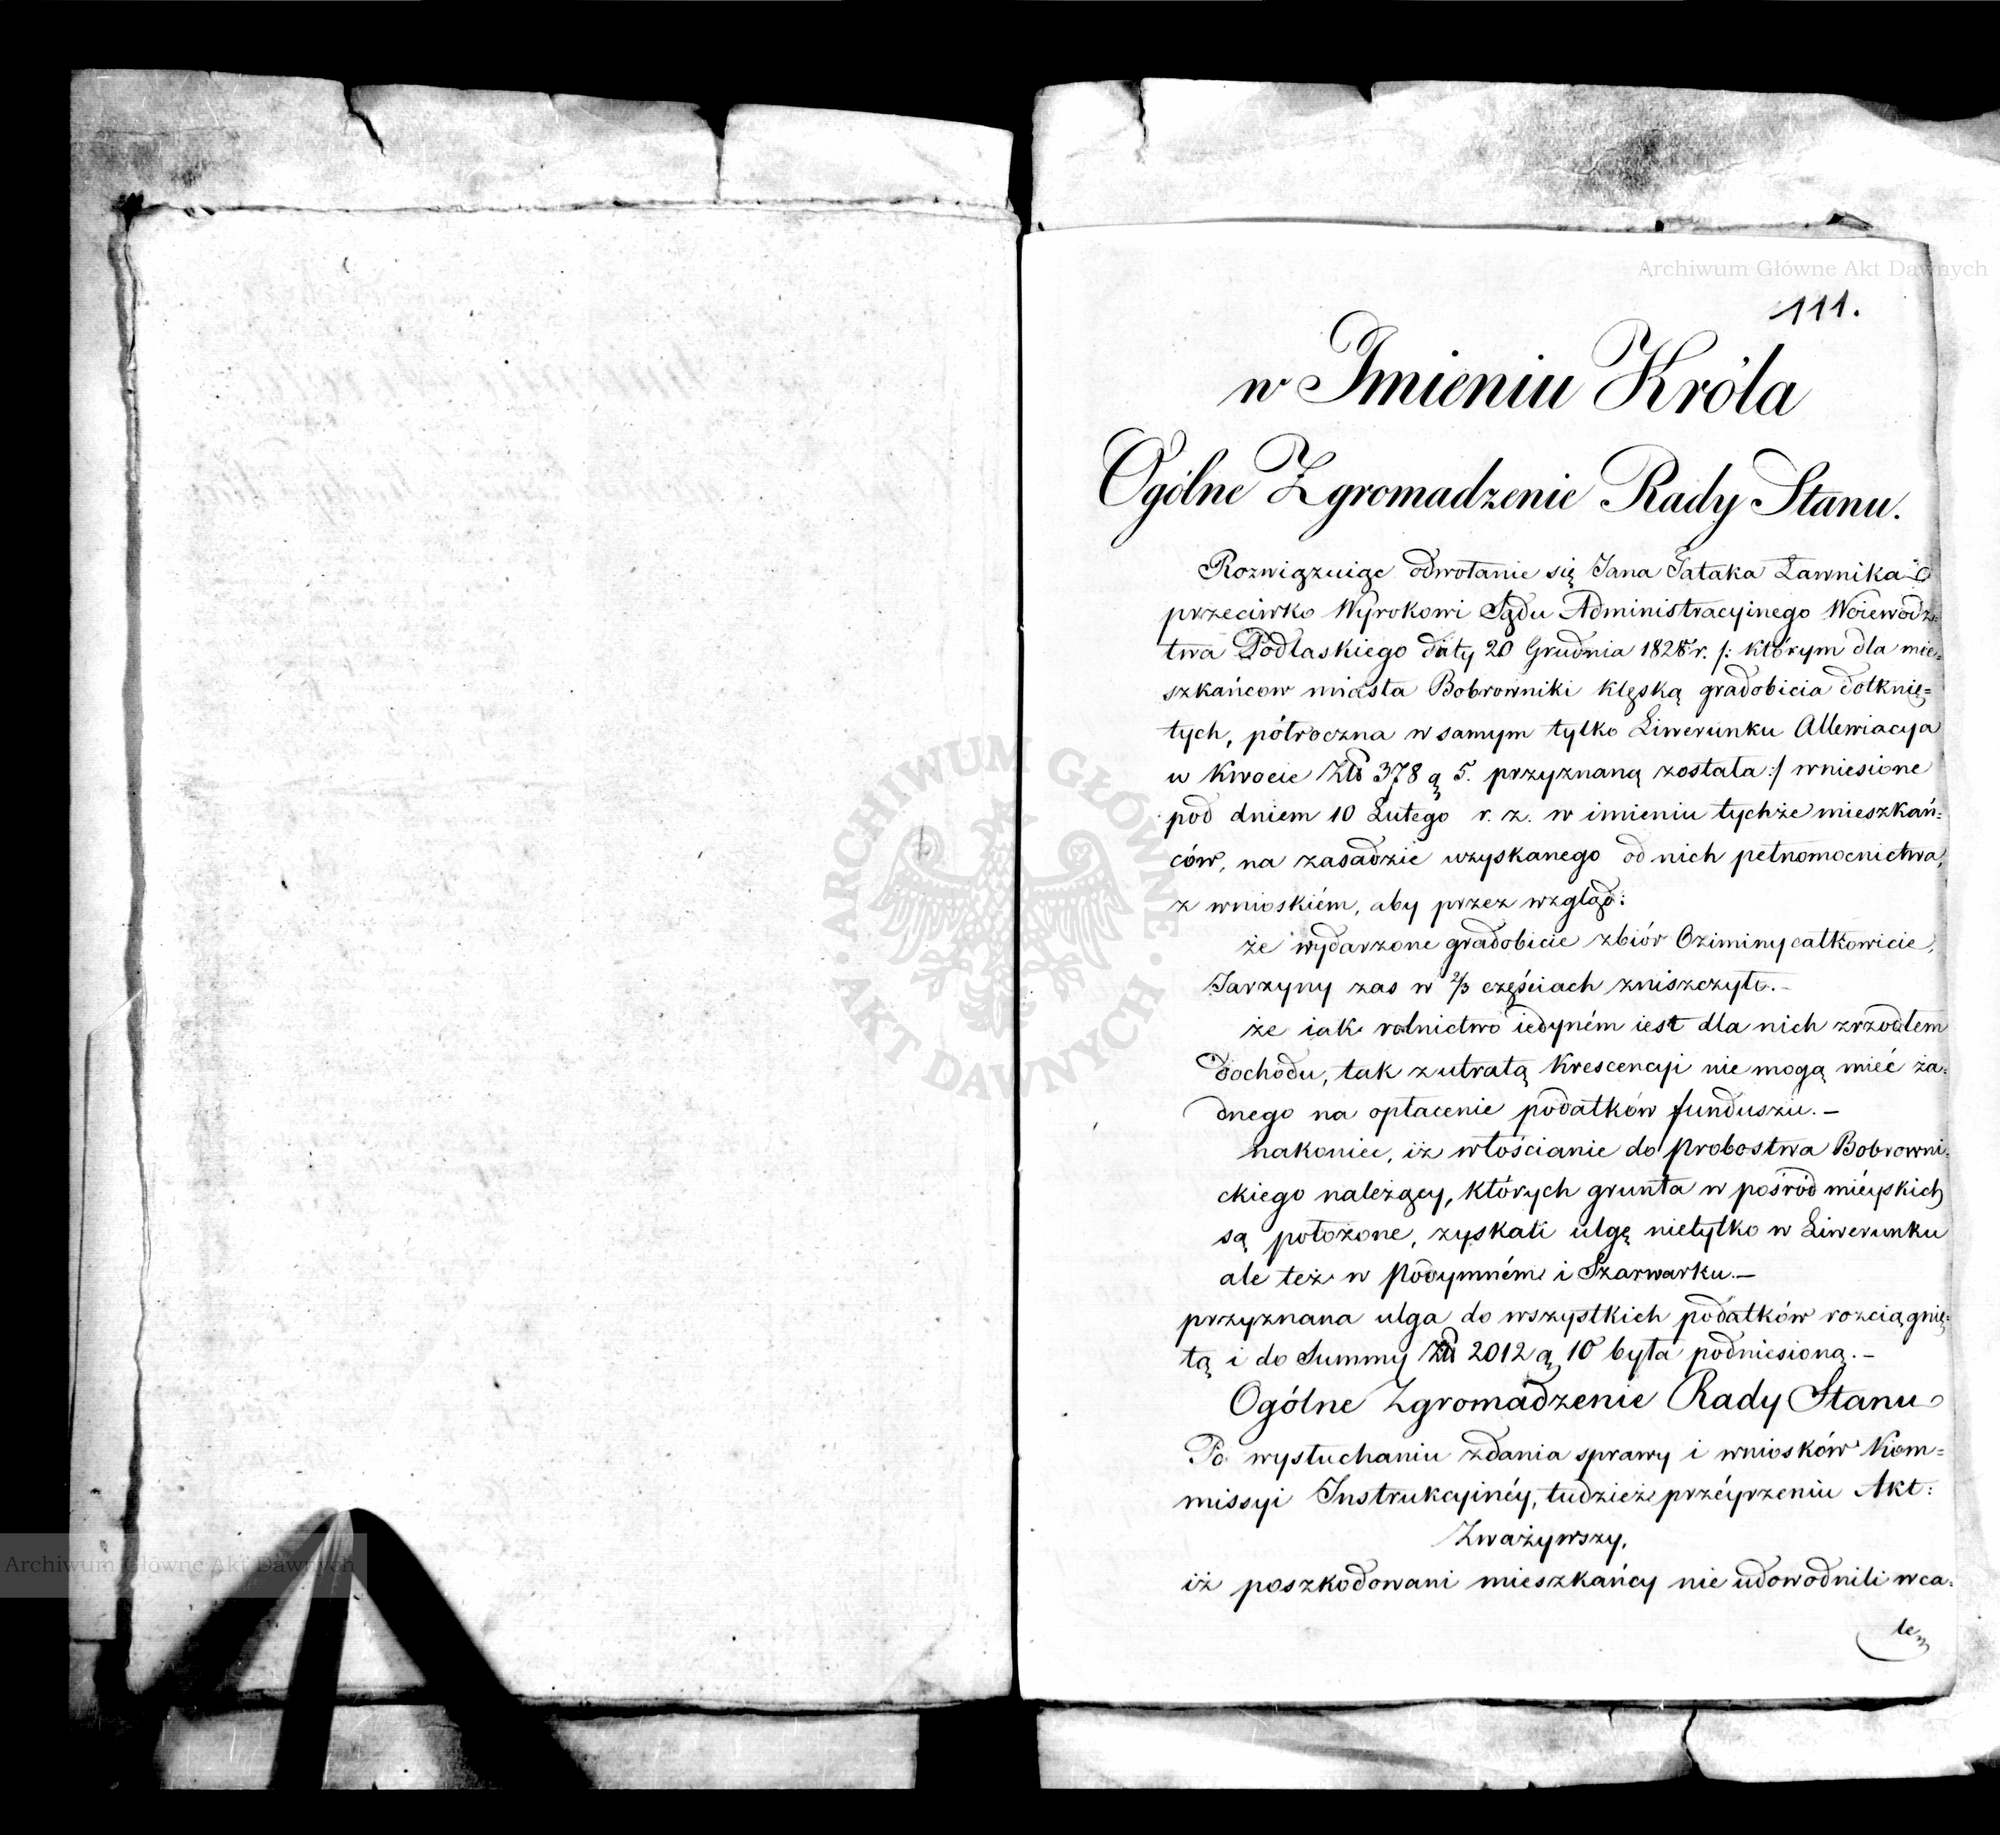 Archiwum Główne Akt Dawnych
111.
w Imieniu Króla
Ogólne Zgromadzenie Rady Stanu.
Rozwiązuiąc odwołanie się Jana Jataka Ławnika
przeciwko Wyrokowi Sądu Administracyinego Woiewodz=
twa Podlaskiego daty 20 Grudnia 1828 r. /: którym dla mie=
szkańcow miasta Bobrowniki klęską gradobicia dotknię=
tych, półroczna w samym tylko Liwerunku Allewiacya
w kwocie Złł 378 g 5. przyznaną została :/ wniesione
pod dniem 10 Lutego r. z. w imieniu tychże mieszkań=
ców, na zasadzie uzyskanego od nich pełnomocnictwa,
z wnioskiém, aby przez wzgląd:
że wydarzone gradobicie zbiór Oziminy całkowicie,
Jarzyny zas w 2/3 częściach zniszczyło.—
że iak rolnictwo iedyném iest dla nich zrzodłem
dochodu, tak z utratą krescencyi nie mogą mieć ża=
dnego na opłacenie podatków funduszu.—
nakoniec, iż włościanie do Probostwa Bobrowni=
ckiego należący, których grunta w pośród mieyskich
są położone, zyskali ulgę nietylko w Liwerunku
ale też w Podymném i Szarwarku.—
przyznana ulga do wszystkich podatków rozciągnię=
tą i do Summy Złł 2012 g 10 była podniesioną.—
Ogólne Zgromadzenie Rady Stanu
Po wysłuchaniu zdania sprawy i wniosków Kom=
missyi Instrukcyinéy, tudzież przéyrzeniu Akt:
Zważywszy,
iż poszkodowani mieszkańcy nie udowodnili wca=
le,
ARCHIWUM GŁÓWNE
AKT DAWNYCH
Archiwum Główne Akt Dawnych